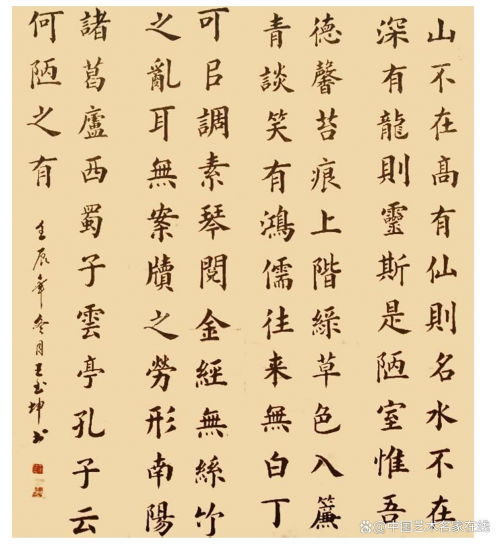 山不在高有仙則名水不在
深有龍則靈斯是陋室惟吾
德馨苔痕上階綠草色入簾
青談笑有鴻儒往来無白丁
可㠯調素琴閱金經無絲竹
之亂耳無案牘之勞形南陽
諸葛廬西蜀子雲亭孔子云
何陋之有
壬辰年冬月王玉坤书
中国艺术名家在线